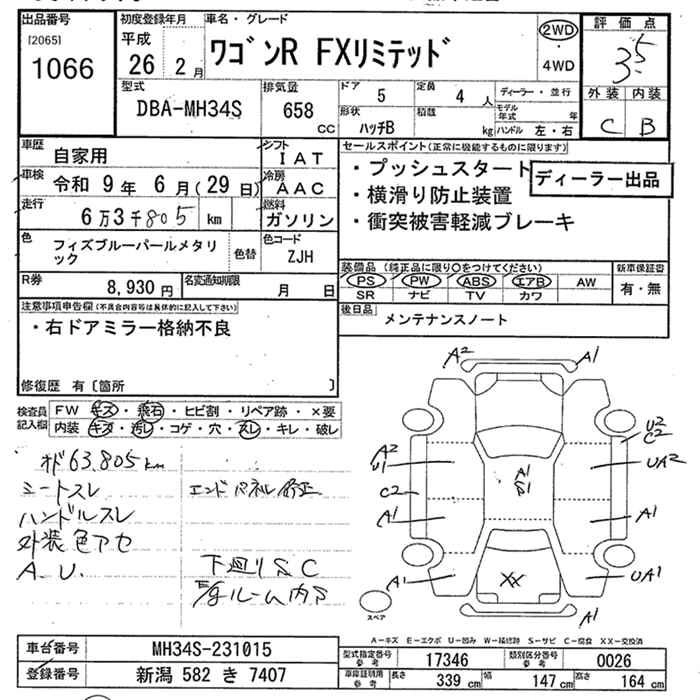 出品番号
[2065]
1066
初度登録年月
平成
26年 2月
車名・グレード
ワゴンR FXリミテッド
2WD
・
4WD
評価点
3.5
外装 内装
C B
型式
DBA-MH34S
排気量
658 cc
ドア 5
定員 4 人
ディーラー・並行
形状 ハッチB
積載 kg
モデル年式 年
ハンドル 左・右
車歴 自家用
シフト IAT
車検 令和 9年 6月(29日)
冷房 AAC
走行 6万3千805 km
燃料 ガソリン
色 フィズブルーパールメタリック
色替
色コード ZJH
R券 8,930円
名変通知期限 月 日
セールスポイント(正常に機能するものに限ります)
・プッシュスタート
・横滑り防止装置
・衝突被害軽減ブレーキ
ディーラー出品
装備品(純正品に限り○をつけてください)
PS PW ABS エアB AW
SR ナビ TV カワ
新車保証書
有・無
後日品 メンテナンスノート
注意事項申告欄(不具合内容等は具体的に記入して下さい)
・右ドアミラー格納不良
修復歴 有〔箇所 〕
検査員記入欄
FW キズ・飛石・ヒビ割・リペア跡・×要
内装 キズ・汚レ・コゲ・穴・スレ・キレ・破レ
オド63,805km
シートスレ
ハンドルスレ
外装色アセ
A.U.
エンドパネル修正
下廻りS C
E/gルーム内S
A2 A1
A2
U1
U2
C2
C2
UA2
A1
S1
A1 A1
A1 UA1
XX
A1
スペア
A-キズ E-エクボ U-凹み W-補修跡 S-サビ C-腐食 XX-交換済
車台番号 MH34S-231015
登録番号 新潟 582 き 7407
型式指定番号 参考 17346
類別区分番号 参考 0026
車庫証明用 参考
長さ 339 cm
幅 147 cm
高さ 164 cm